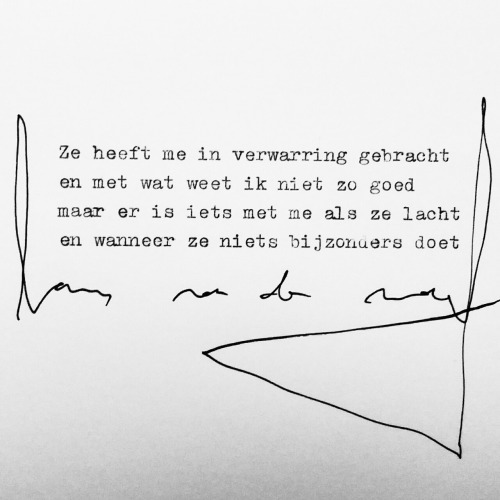 Ze heeft me in verwarring gebracht
en met wat weet ik niet zo goed
maar er is iets met me als ze lacht
en wanneer ze niets bijzonders doet